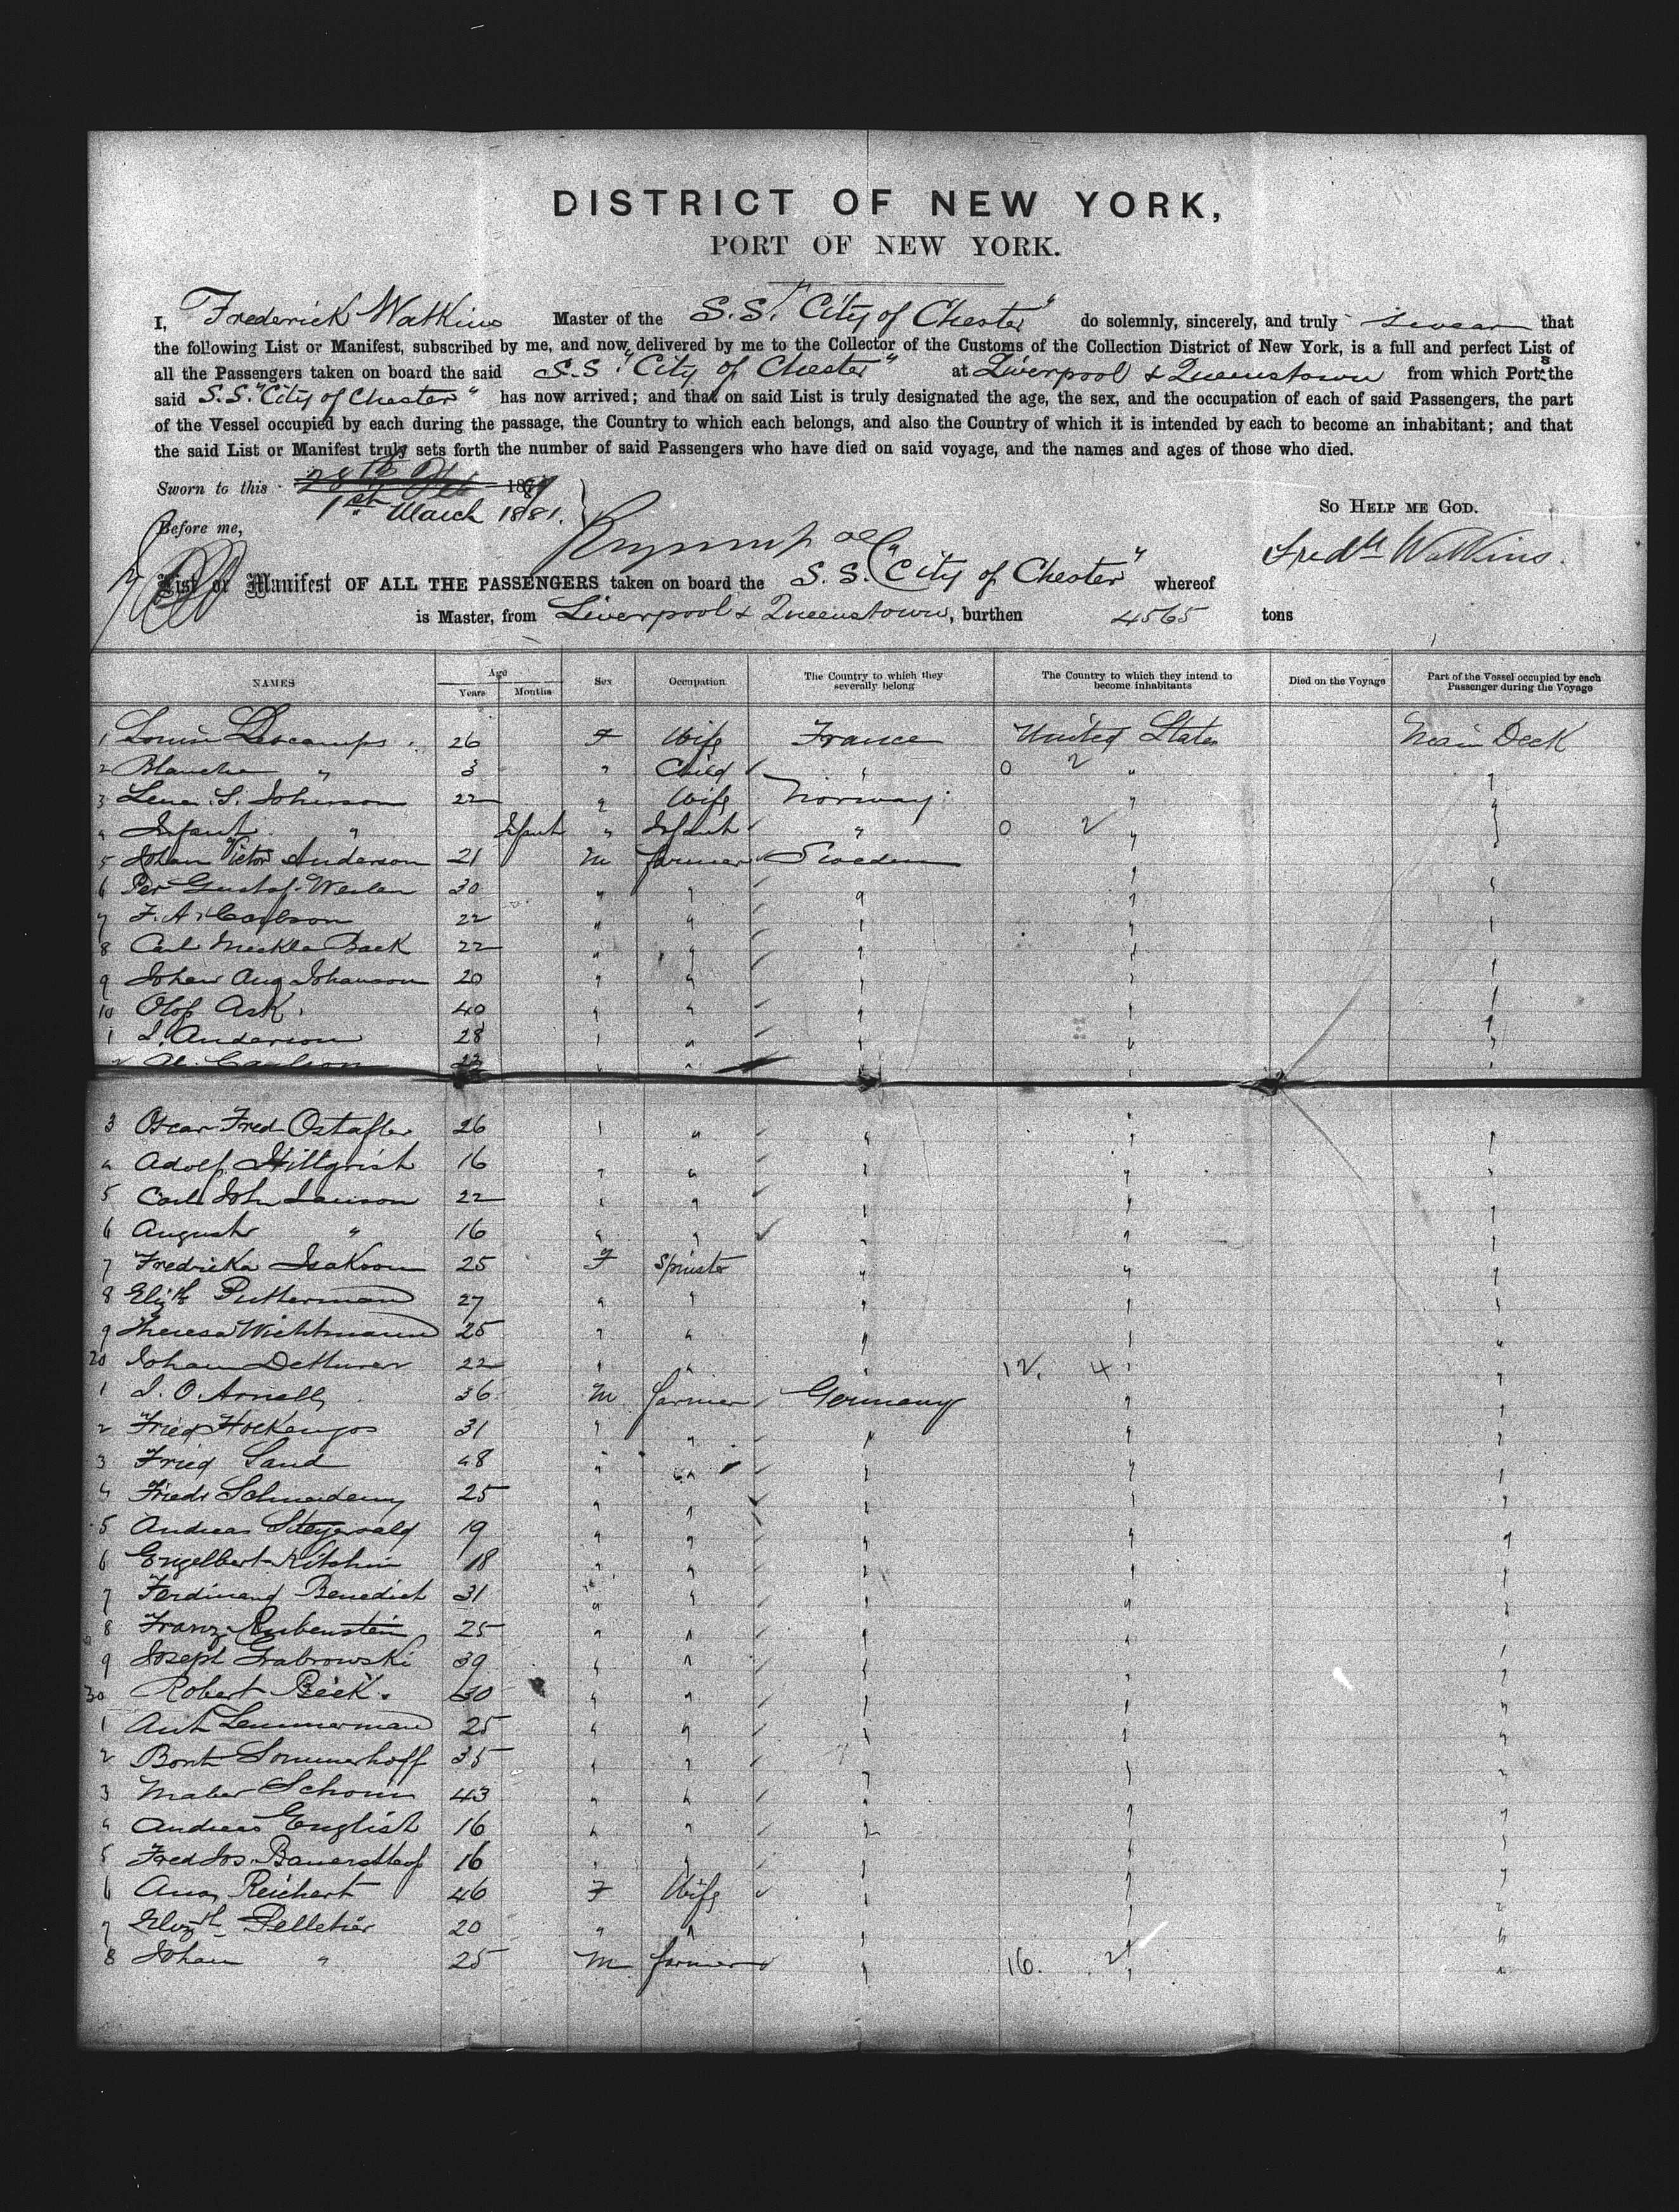 DISTRICT OF NEW YORK,
PORT OF NEW YORK.
I, Frederick Watkins Master of the S.S. "City of Chester" do solemnly, sincerely, and truly swear that
the following List or Manifest, subscribed by me, and now delivered by me to the Collector of the Customs of the Collection District of New York, is a full and perfect List of
all the Passengers taken on board the said S.S. "City of Chester" at Liverpool & Queenstown from which Ports the
said S.S. "City of Chester" has now arrived; and that on said List is truly designated the age, the sex, and the occupation of each of said Passengers, the part
of the Vessel occupied by each during the passage, the Country to which each belongs, and also the Country of which it is intended by each to become an inhabitant; and that
the said List or Manifest truly sets forth the number of said Passengers who have died on said voyage, and the names and ages of those who died.
Sworn to this 28th Feb 187
1st March 1881.
So Help me God.
Before me,
Fredk Watkins.
List or Manifest OF ALL THE PASSENGERS taken on board the S.S. "City of Chester" whereof
is Master, from Liverpool & Queenstown, burthen 4565 tons
NAMES Age Years Months Sex Occupation The Country to which they severally belong The Country to which they intend to become inhabitants Died on the Voyage Part of the Vessel occupied by each Passenger during the Voyage
1 Louise Descamps 26 F Wife France United States Main Deck
2 Blanche " 3 " Child " 0 2 " "
3 Lena S. Johnson 22 " Wife Norway " "
4 Infant " Infant " Infant " 0 2 " "
5 Johan Victor Anderson 21 M farmer Sweden " "
6 Per Gustaf Weslen 30 " " " " "
7 F. A. Carlson 22 " " " " "
8 Carl Back 22 " " " " "
9 Johan Aug Johanson 20 " " " " "
10 Olof Ask. 40 " " " " "
1 J. Anderson 28 " " " " "
2 Al. Carlson 22 " " " " "
3 Oscar Fred Ostafler 26 " " " " "
4 Adolf Hillgrist 16 " " " " "
5 Carl John Lawson 22 " " " " "
6 August " 16 " " " " "
7 Fredricka Isakson 25 F Spinster " " "
8 Elizth Putterman 27 " " " " "
9 Theresa Wichtmann 25 " " " " "
20 Johann 22 " " " 12. 4 " "
1 J. O. Arnell 36 M farmer Germany " "
2 Fried Hockenjos 31 " " " " "
3 Fried Sand 48 " " " " "
4 Friedr 25 " " " " "
5 Andreas Steyerwald 19 " " " " "
6 Engelbert Kitchin 18 " " " " "
7 Ferdinand Benedict 31 " " " " "
8 Franz Rubenstein 25 " " " " "
9 Joseph Grabrowski 39 " " " " "
30 Robert Beck. 30 " " " " "
1 Ant Lemmerman 25 " " " " "
2 Sommerhoff 35 " " " " "
3 43 " " " " "
4 Andreas English 16 " " " " "
5 Fred Jos. 16 " " " " "
6 Anna Reichert 46 F Wife " " "
7 Elizth Pelletier 20 " " " " "
8 Johann " 25 M farmer " 16. 2 " "